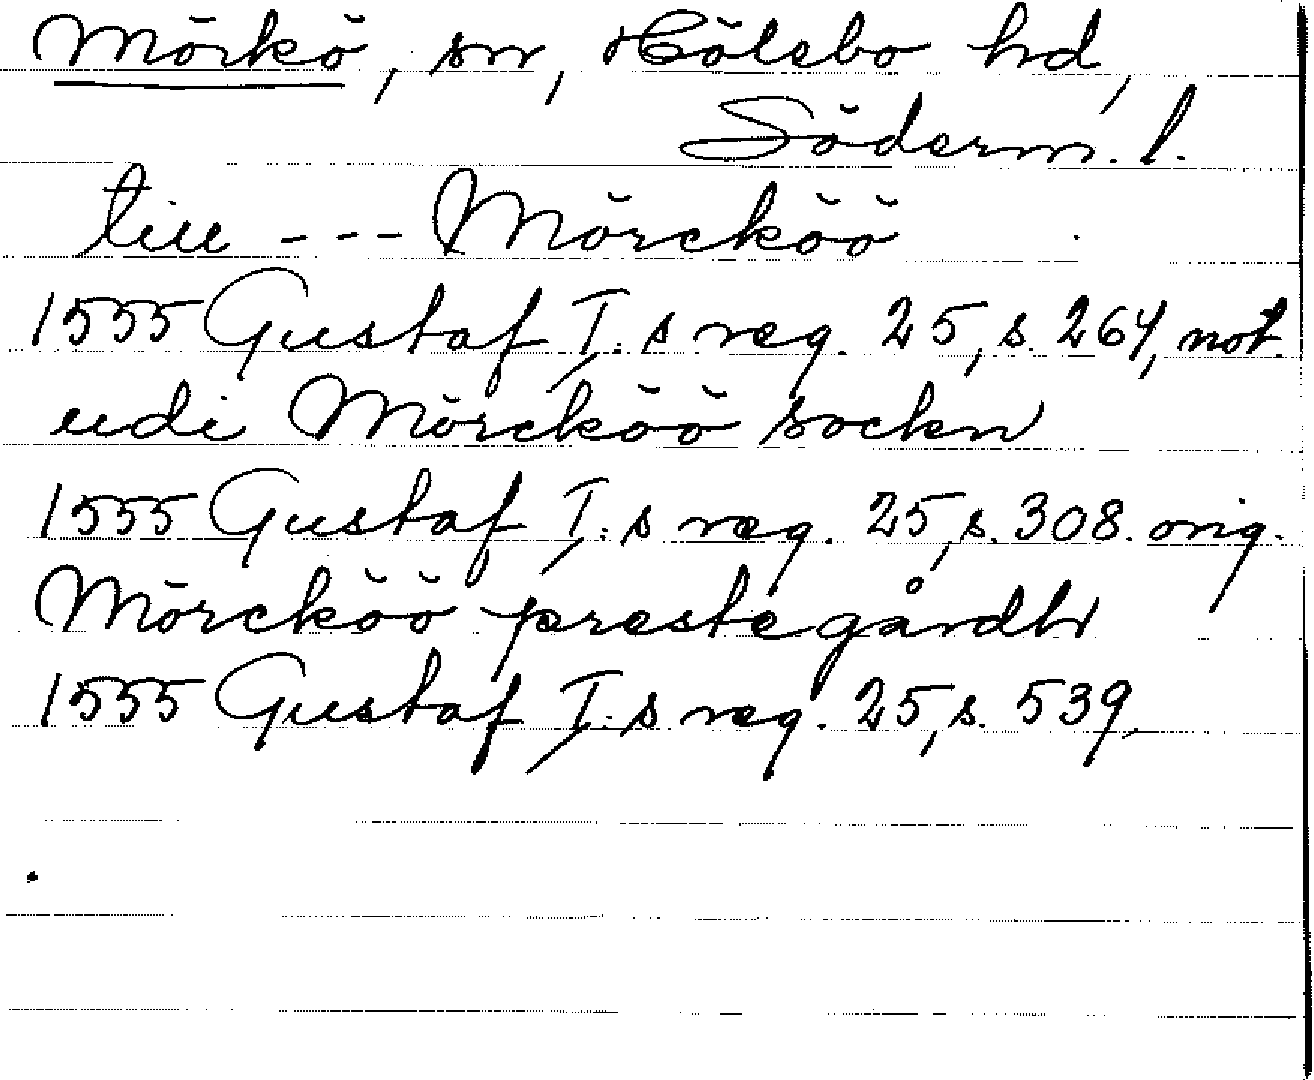 Mörkö, sn, Hölebo hd,
Söderm. l.
till --- Mörcköö
1555 Gustaf I:s reg. 25, s. 264, not.
udi Mörcköö sockn
1555 Gustaf I:s reg. 25, s. 308. orig.
Mörcköö prestegårdh
1555 Gustaf I:s reg. 25, s. 539,